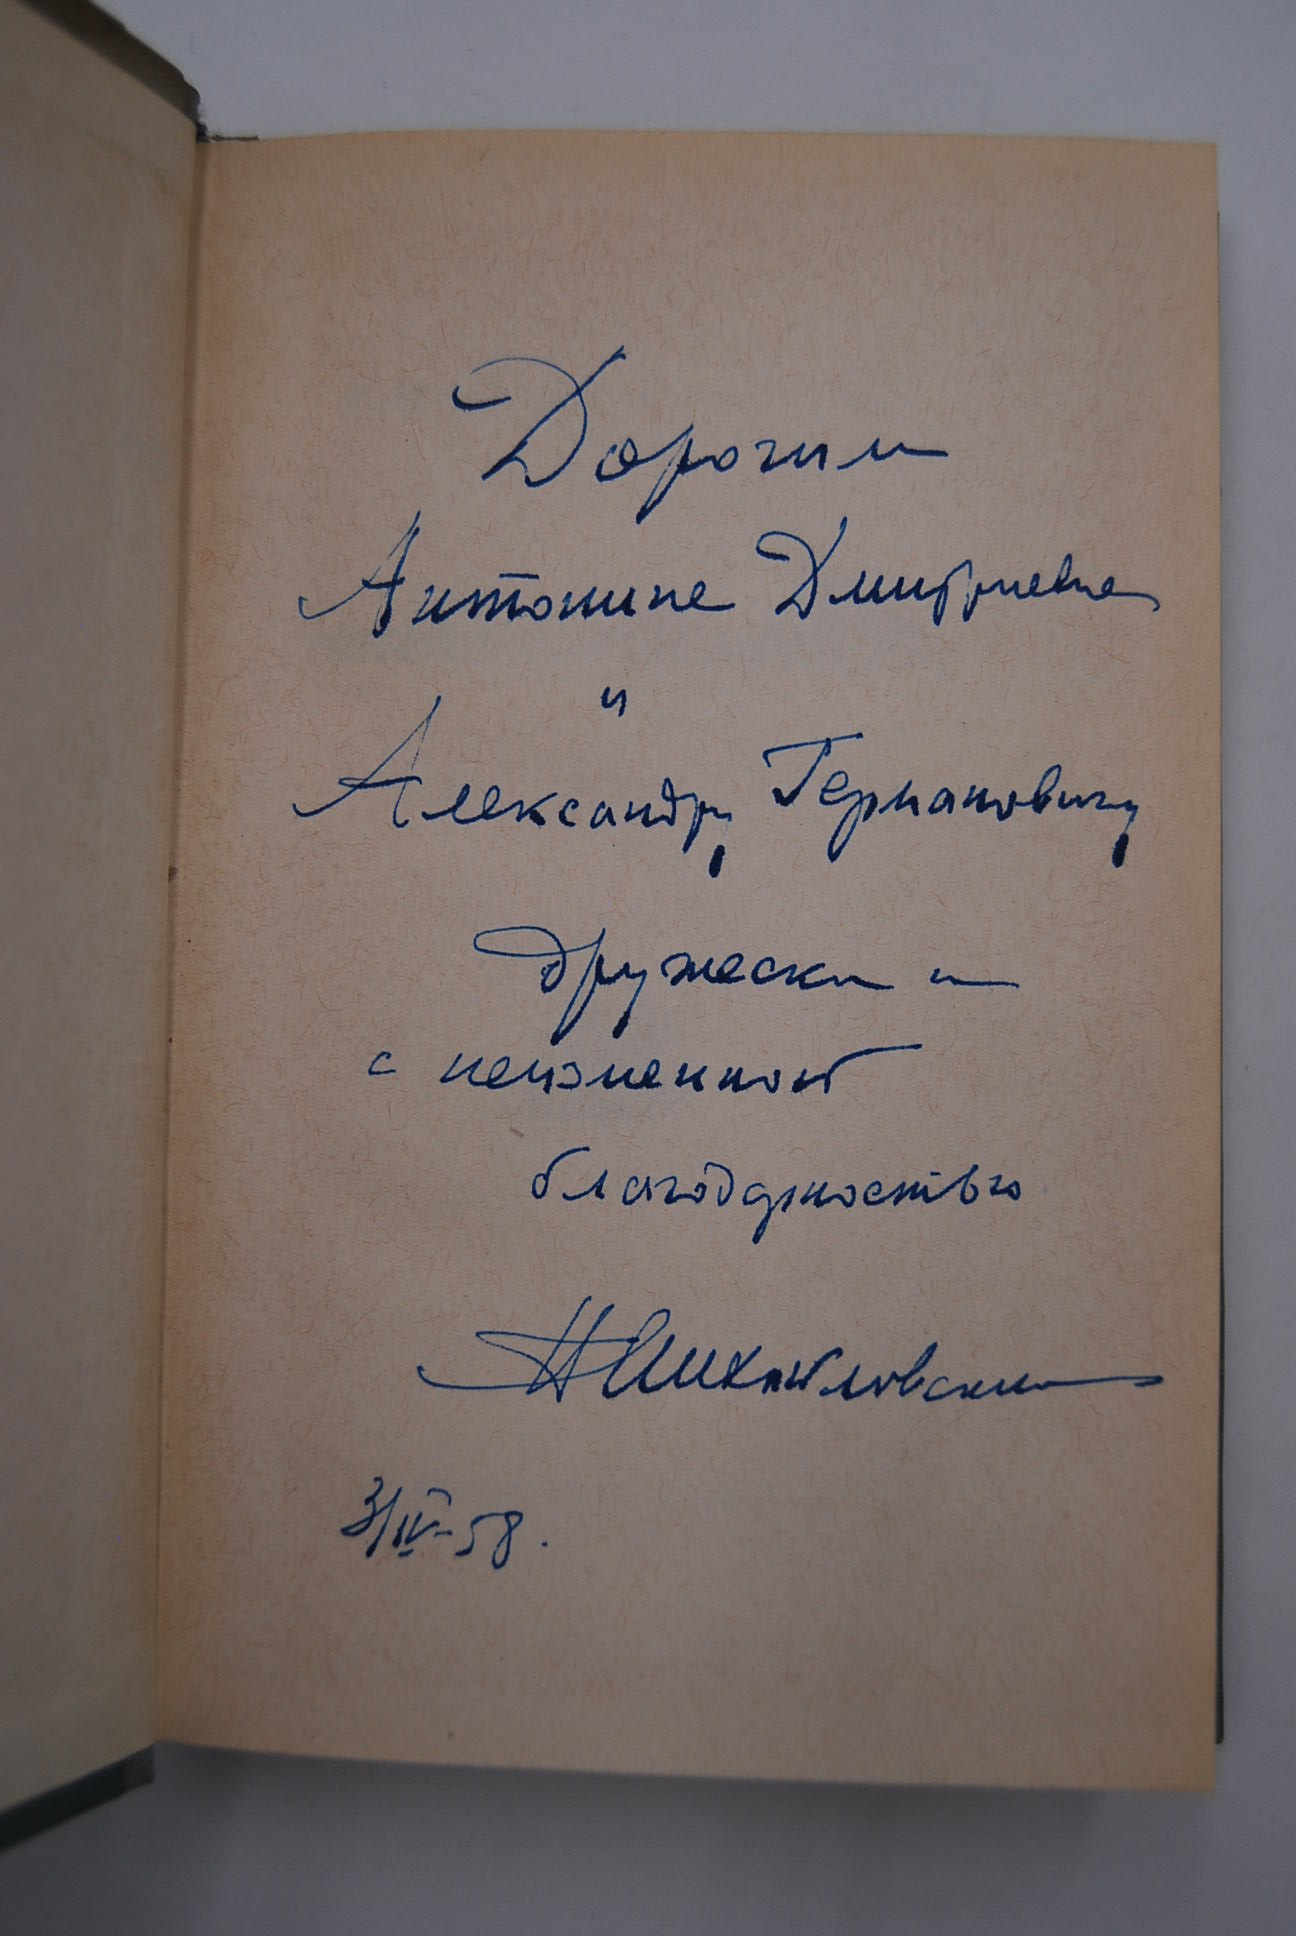 Дорогим
Антонине Дмитриевне
и
Александру Германовичу
дружески и
с неизменной
благодарностью
Н Михайловский
3/IV-58.